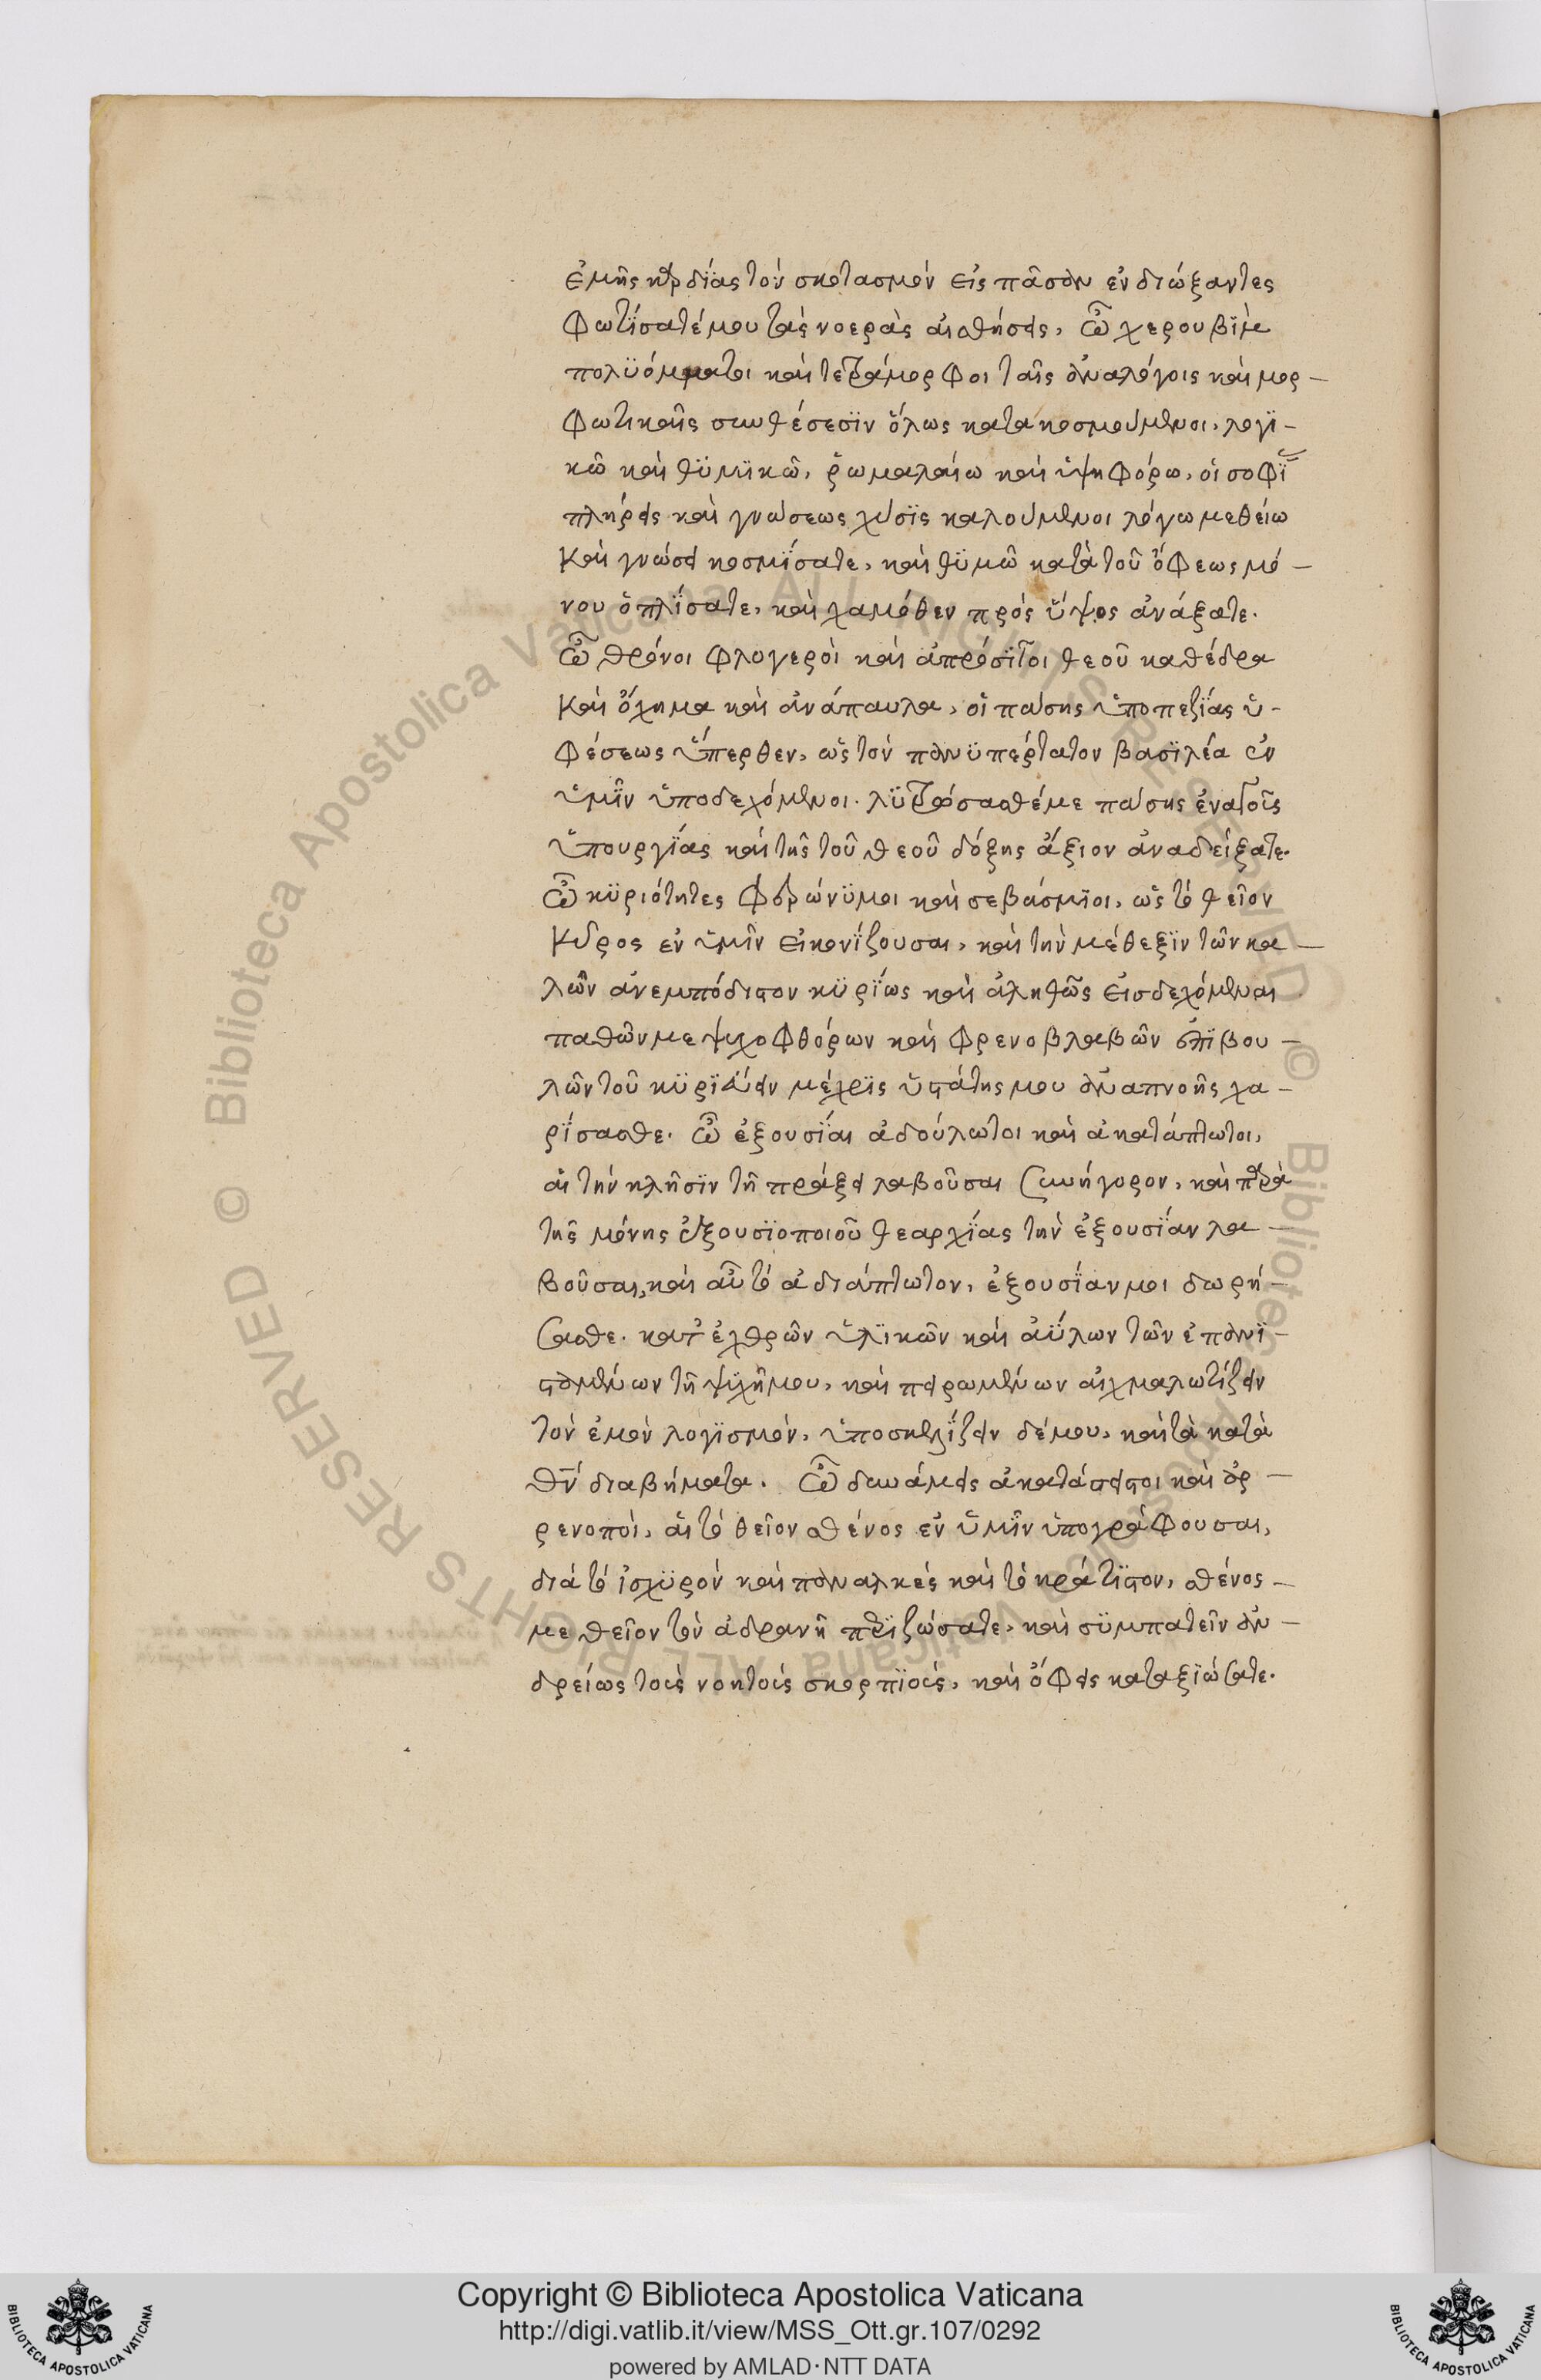 ἐμῆς καρδίας τὸν σκοτασμὸν εἰς πᾶσαν ἐνδιώξαντες
φωτίσατέ μου τὰς νοερὰς αἰσθήσεις, ὦ χερουβὶμ
πολυόμματοι καὶ τετράμορφοι ταῖς ἀναλόγοις καὶ μορ-
φωτικαῖς συνθέσεσιν ὅλως κατακοσμούμενοι, λογι-
κῶ καὶ θυμικῶ, ῥωμαλαίω καὶ ὑψηφόρω, οἱ σοφί
πλήρεις καὶ γνώσεως χύσις καλούμενοι λόγω με θείω
καὶ γνώσει κοσμίσατε, καὶ θυμῶ κατὰ τοῦ ὄφεως μό-
νου ὁπλίσατε, καὶ χαμόθεν πρὸς ὕψος ἀνάξατε.
Ὦ θρόνοι φλογεροὶ καὶ ἀπρόσιτοι θεοῦ καθέδρα
καὶ ὄχημα καὶ ἀνάπαυλα, οἱ πάσης ὑποπεζίας ὑ-
φέσεως ὕπερθεν, ὡς τὸν πανυπέρτατον βασιλέα ἐν
ὑμῖν ὑποδεχόμενοι. λυτρώσασθέ με πάσης ἐναγοῦς
ὑπουργίας καὶ τῆς τοῦ θεοῦ δόξης ἄξιον ἀναδείξατε.
Ὦ κυριότητες φερώνυμοι καὶ σεβάσμιοι, ὡς τὸ θεῖον
κῦρος ἐν ὑμῖν εἰκονίζουσαι, καὶ τὴν μέθεξιν τῶν κα-
λῶν ἀνεμπόδιστον κυρίως καὶ ἀληθῶς εἰσδεχόμεναι
παθῶν με ψυχοφθόρων καὶ φρενοβλαβῶν ἐπιβου-
λῶν τοῦ κυριεύειν μέχρις ὑστάτης μου ἀναπνοῆς χα-
ρίσασθε. Ὦ ἐξουσίαι ἀδούλωτοι καὶ ἀκατάπτωτοι,
αἱ τὴν κλῆσιν τῆ πράξει λαβοῦσαι συνήγορον, καὶ παρὰ
τῆς μόνης ἐξουσιοποιοῦ θεαρχίας τὴν ἐξουσίαν λα-
βοῦσαι, καὶ αὐτὸ ἀδιάπτωτον, ἐξουσίαν μοι δωρή-
σασθε. κατ' ἐχθρῶν ὑλικῶν καὶ ἀΰλων τῶν ἐπανι-
σταμένων τῆ ψυχῆ μου, καὶ πειρωμένων αἰχμαλωτίζειν
τὸν ἐμὸν λογισμὸν, ὑποσκελίζειν δέ μου, καὶ τὰ κατὰ
θν̄ διαβήματα. Ὦ δυνάμεις ἀκατάσειστοι καὶ ἀρ-
ρενοποὶ, αἱ τὸ θεῖον σθένος ἐν ὑμῖν ὑπογράφουσαι,
διὰ τὸ ἰσχυρὸν καὶ παναλκὲς καὶ τὸ κράτιστον, σθένος-
με θεῖον τὸν ἀδρανῆ περιζώσατε, καὶ συμπατεῖν ἀν-
δρείως τοὺς νοητοὺς σκορπίους, καὶ ὄφεις καταξιώσατε.
Copyright © Biblioteca Apostolica Vaticana
http://digi.vatlib.it/view/MSS_Ott.gr.107/0292
powered by AMLAD·NTT DATA